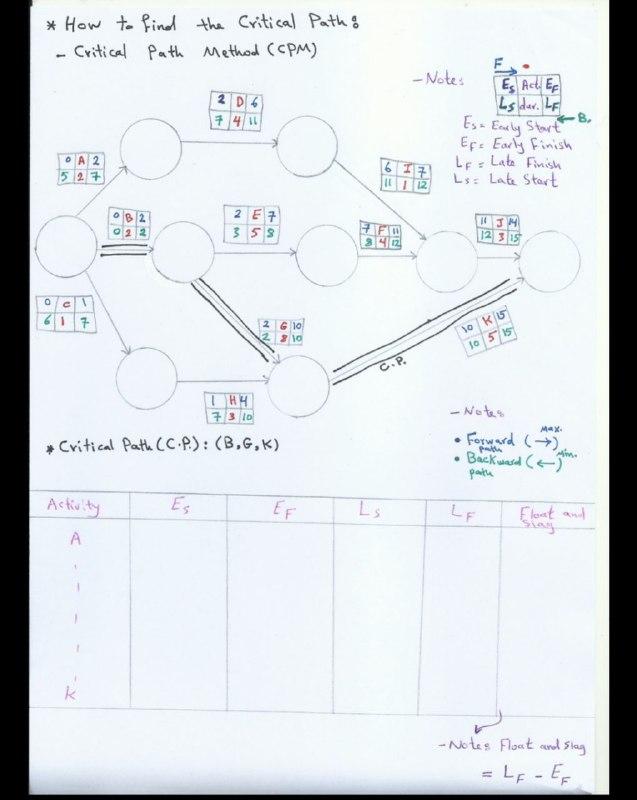 * How to find the Critical Path:
- Critical Path Method (CPM)
- Notes
F
Es Act. EF
Ls dur. LF
B.
Es = Early Start
EF = Early Finish
LF = Late Finish
Ls = Late Start
2 D 6
7 4 11
0 A 2
5 2 7
6 I 7
11 1 12
0 B 2
0 2 2
2 E 7
3 5 8
7 F 11
8 4 12
11 J 14
12 3 15
0 C 1
6 1 7
2 G 10
2 8 10
10 K 15
10 5 15
C.P.
1 H 4
7 3 10
- Notes
• Forward (→) max.
path
• Backward (←) Min.
path
* Critical Path (C.P.): (B,G,K)
Activity Es EF Ls LF Float and
Slag
A
K
- Notes Float and Slag
= LF - EF